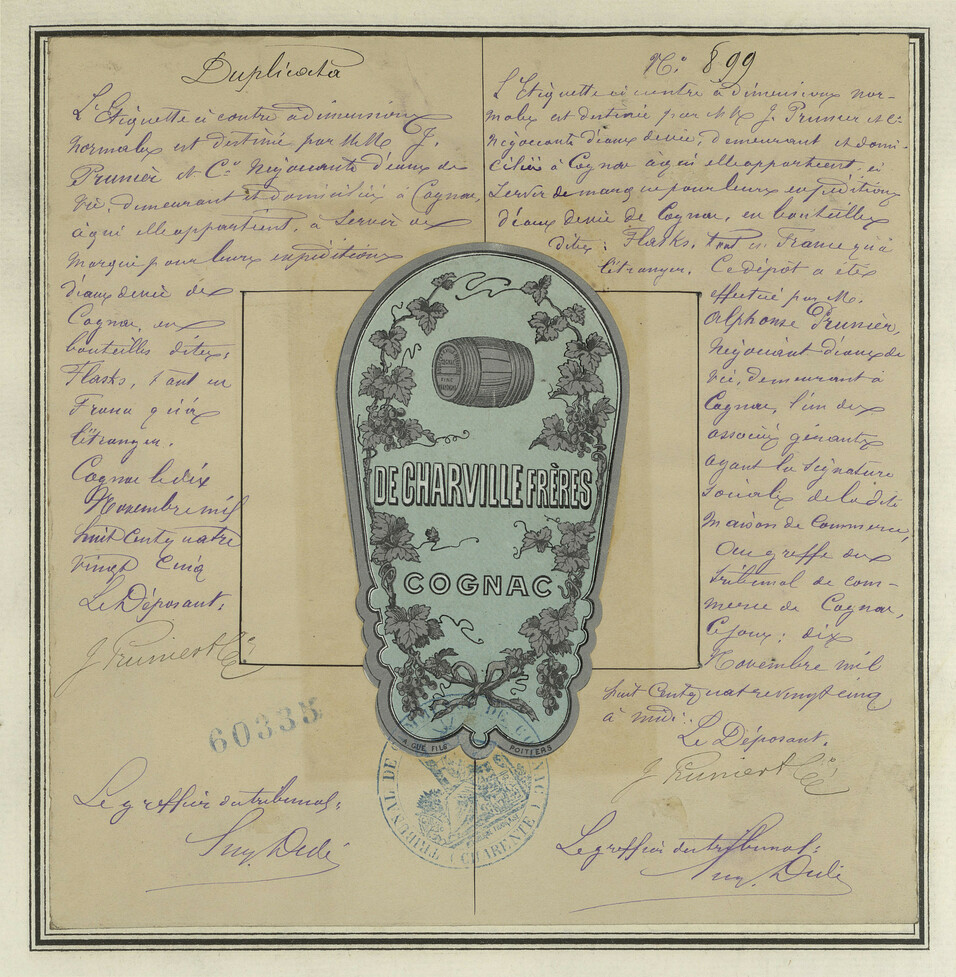 Duplicata
L'Etiquette ci contre à dimensions
normales est destinée par MM. J.
Prunier et Cie Négociants d'eaux de
vie, demeurant et domiciliés à Cognac,
à qui elle appartient, à servir de
marque pour leurs expéditions
d'eaux de vie de
Cognac, en
bouteilles dites:
Flasks, tant en
France qu'à
l'étranger.
Cognac le dix
Novembre mil
huit cent quatre
vingt cinq
Le Déposant:
J. Prunier & Cie
60335
Le greffier du tribunal:
No. 899
L'Etiquette ci contre à dimensions nor-
males est destinée par MM. J. Prunier et Cie
négociants d'eaux de vie, demeurant et domi-
ciliés à Cognac à qui elle appartient, à
servir de marque pour leurs expéditions
d'eaux de vie de Cognac, en bouteilles
dites: Flasks, tant en France qu'à
l'étranger. Ce dépôt a été
effectué par M.
Alphonse Prunier,
Négociant d'eaux de
vie, demeurant à
Cognac, l'un des
associés gérants
ayant la signature
sociale de la dite
Maison de Commerce,
Au greffe du
tribunal de com-
merce de Cognac,
Ce jour: dix
Novembre mil
huit cent quatre vingt cinq
à midi.
Le Déposant.
J. Prunier & Cie
Le greffier du tribunal:
FINE
DE CHARVILLE FRÈRES
COGNAC
A. GUÉ FILS POITIERS
TRIBUNAL DE COMMERCE DE COGNAC (CHARENTE)